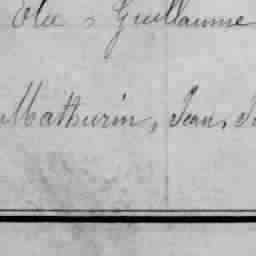 Guillaume
Mathurin, Jean,